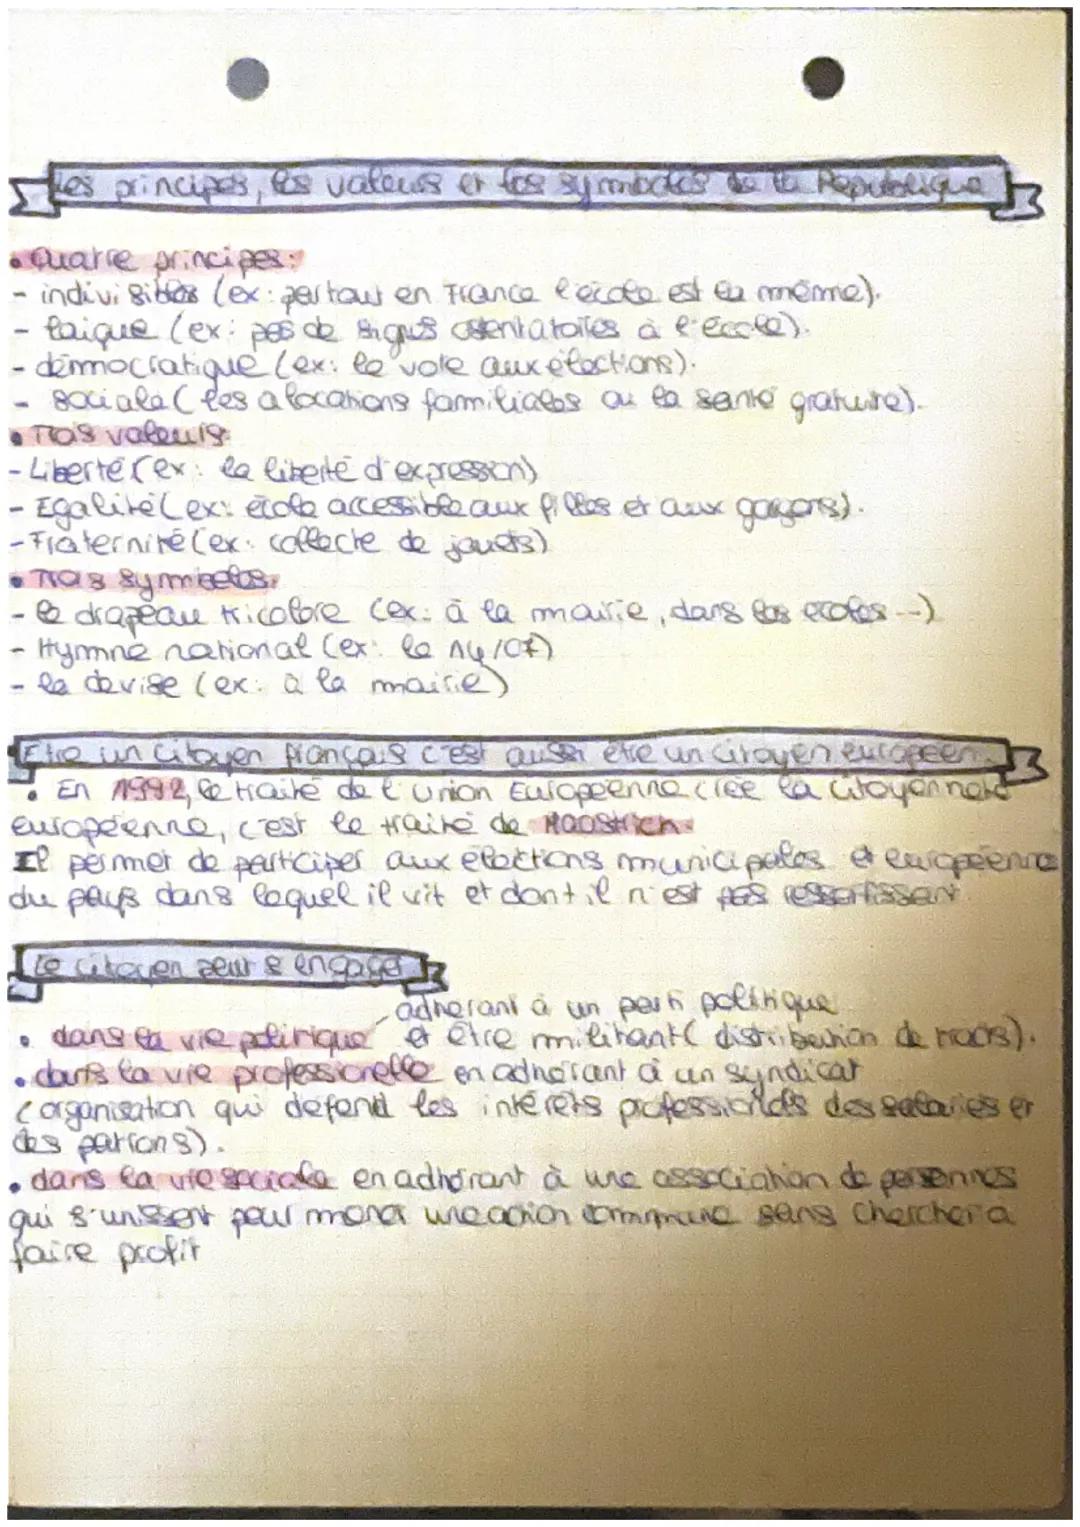 Les principes, les valeurs et les symboles de la République
• Quatre principes:
- indivisibles (ex: partout en France l'école est la même).
- laïque (ex: pas de signes ostentatoires à l'école).
- démocratique (ex: le vote aux élections).
- sociale (les alocations familiales ou la santé gratuite).
• Trois valeurs
- Liberté (ex: la liberté d'expression)
- Egalité (ex: école accessible aux filles et aux garçons).
- Fraternité (ex: collecte de jouets)
• Trois symboles:
- le drapeau tricolore (ex: à la mairie, dans les écoles...)
- Hymne national (ex: le 14/07)
- la devise (ex: à la mairie)
Etre un citoyen français c'est aussi être un citoyen européen.
• En 1992, le traité de l'union Européenne crée la citoyenneté
européenne, c'est le traité de Maastrich.
Il permet de participer aux élections municipales et européenne
du pays dans lequel il vit et dont il n'est pas ressortissant.
Le citoyen peut s'engager
adhérant à un parti politique
• dans la vie politique et être militant (distribution de tracts).
• dans la vie professionelle en adhérant à un syndicat
(organisation qui défend les intérêts professionels des salariés et
des patrons).
• dans la vie sociale en adhérant à une association de personnes
qui s'unissent pour mener une action commune sans chercher à
faire profit